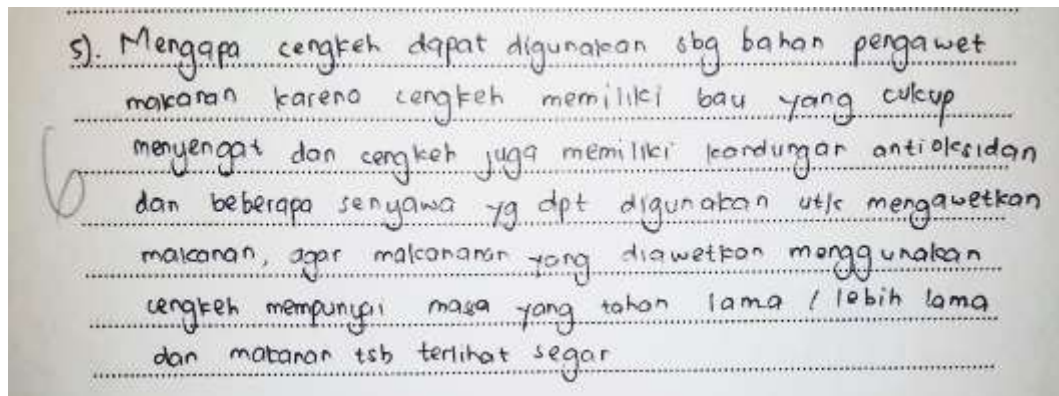 5). Mengapa cengkeh dapat digunakan sbg bahan pengawet
makanan karena cengkeh memiliki bau yang cukup
menyengat dan cengkeh juga memiliki kandungan antioksidan
6
dan beberapa senyawa yg dpt digunakan utk mengawetkan
makanan, agar makananan yang diawetkan menggunakan
cengkeh mempunyai masa yang tahan lama / lebih lama
dan makanan tsb terlihat segar